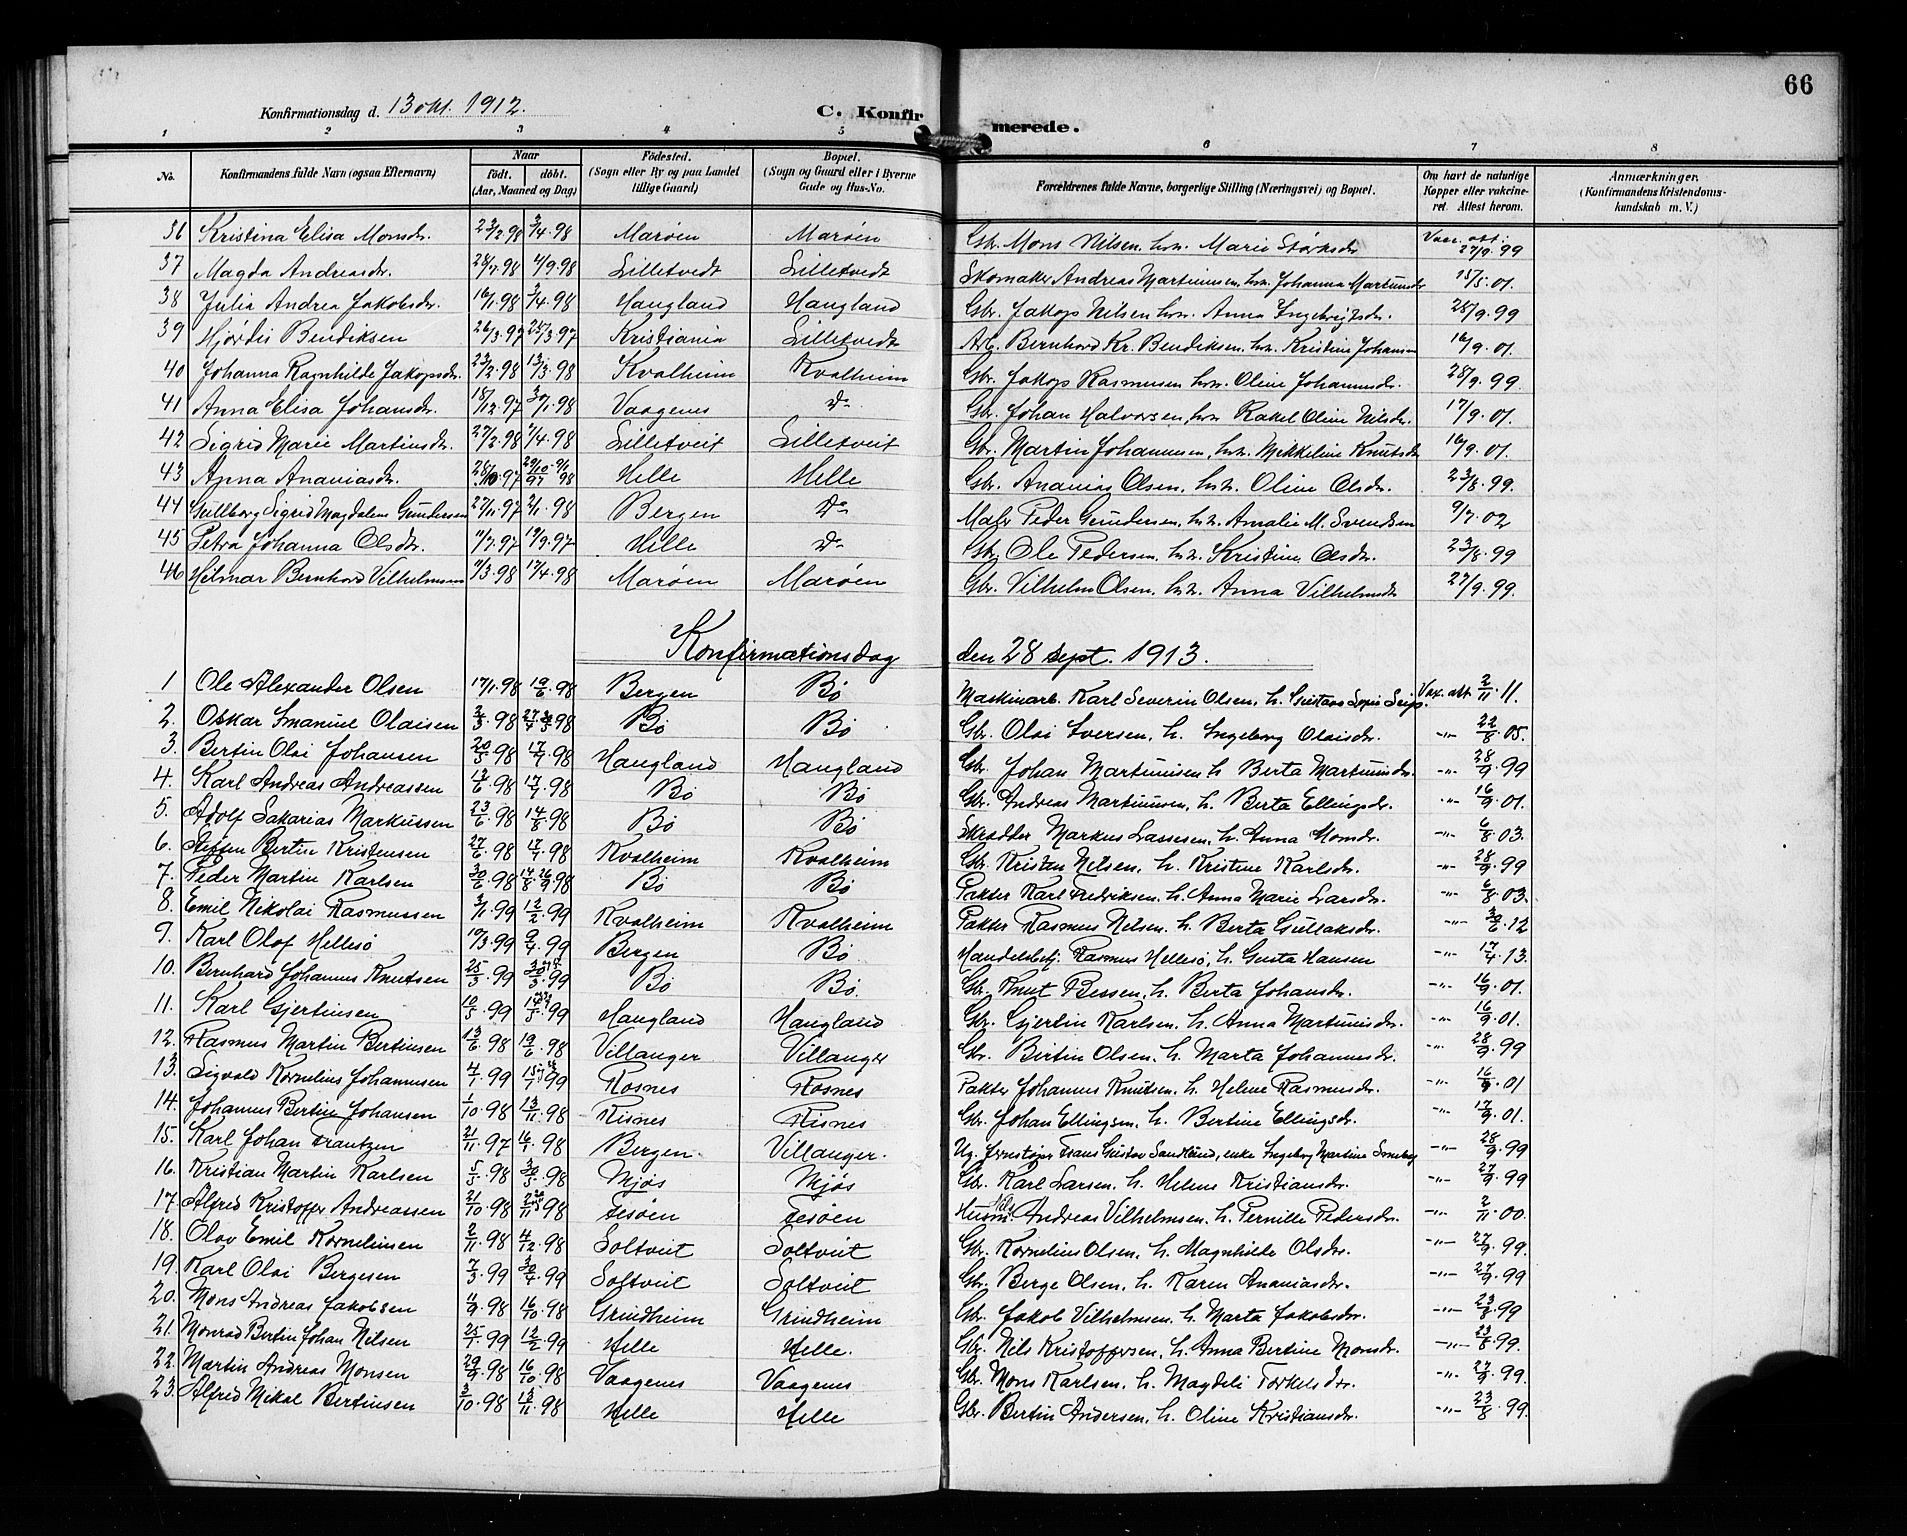 66
Konfirmationsdag d. 13 okt. 1912. C. Konfirmerede.
1 2 3 4 5 6 7 8
No. Konfirmandens fulde Navn (ogsaa Efternavn) Naar födt. döbt. (Aar, Maaned og Dag) Födested. (Sogn eller By og paa Landet tillige Gaard) Bopæl. (Sogn og Gaard eller i Byerne Gade og Hus-No. Forældrenes fulde Navne, borgerlige Stilling (Næringsvei) og Bopæl. Om havt de naturlige Kopper eller vakcineret. Attest herom. Anmærkninger. (Konfirmandens Kristendomskundskab m. V.)
36 Kristina Elisa Monsdr. 23/2 98 3/4. 98 Marøen Marøen Gbr. Mons Nilsen, hv. Marie Størksdr. Vacc. att: 27/9. 99
37 Magda Andreasdr. 28/7. 98 4/9. 98 Lilletvedt Lilletvedt Skomaker Andreas Martinusen, hv. Johanna Martinusdr. 15/5. 01.
38 Julia Andrea Jakobsdr. 16/1. 98 3/4. 98 Haugland Haugland Gbr. Jakop Nilsen hv. Anna Ingebrigtsdr. 28/9. 99
39 Hjørdis Bendiksen 26/3. 97 28/3. 97 Kristiania Lilletvedt Arb. Bernhard Kr. Bendiksen, hv. Kristine Johansen 16/9. 01.
40 Johanna Ragnhilde Jakopsdr. 23/2. 98 13/3. 98 Kvalheim Kvalheim Gbr. Jakop Rasmusen hv. Oline Johannesdr. 28/9. 99
41 Anna Elisa Johansdr. 18/12. 97 30/1. 98 Vaagenes Do Gbr. Johan Halvorsen, hv. Rakel Oline Nilsdr. 17/9. 01.
42 Sigrid Marie Martinsdr. 27/2. 98 /4. 98 Lilletveit Lilletveit Gbr. Martin Johannesen, hv. Mikkeline Knutsdr. 16/9. 01.
43 Anna Ananiasdr. 28/10. 97 Helle Helle Gbr. Ananias Olsen, hv. Oline Olsdr. 23/8. 99.
44 Gullborg Sigrid Magdalene Gundersen 27/11. 97 2/1. 98 Bergen Do Maler Peder Gundersen, hv. Amalie M. Svendsen 9/7. 02
45 Petra Johanna Olsdr. /7. 97 19/9. 97 Helle Do Gbr. Ole Pedersen, hv. Kristine Olsdr. 23/8. 99
46 Hilmar Bernhard Vilhelmsen /3. 98 17/4. 98 Marøen Marøen Gbr. Vilhelm Olsen, hv. Anna Vilhelmsdr. 27/9. 99.
Konfirmationsdag den 28 sept. 1913.
1 Ole Alexander Olsen 17/1. 98 19/6. 98 Bergen Bø Maskinarb. Karl Severin Olsen, h. Gustava Vax. att. 2/11. 11.
2. Oskar Emanuel Olaisen 98 98 Bø Bø Gbr. Olai Iversen, h. Ingeborg Olaisdr. -"- 22/8. 05.
3. Bertin Olai Johansen 20/5. 98 98 Haugland Haugland Gbr. Johan Martinusen h. Berta Martinusdr. -"- 28/9. 99
4. Karl Andreas Andreassen 98 98 Bø Bø Gbr. Andreas Martinusen, h. Berta Ellingsdr. -"- 16/9. 01.
5. Adolf Sakarias Markussen 23/6. 98 14/8. 98 Bø Bø Skrædder Markus Lassesen, h. Anna Monsdr. -"- 6/8. 03.
6. Steffen Bertin Kristensen 27/6. 98 98 Kvalheim Kvalheim Gbr. Kristen Nilsen, h. Kristine Karlsdr. -"- 28/9. 99
7. Peder Martin Karlsen 30/6. 98 14/8. 98 Bø Bø Pakter Karl Fredriksen, h. Anna Marie Larsdr. -"- 6/8. 03.
8. Emil Nikolai Rasmussen 3/1. 99 12/2. 99 Kvalheim Kvalheim Pakter Rasmus Nilsen, h. Berta Gullaksdr. -"- 30/6. 12
9. Karl Olof Hellesø 10/3. 99 9/4. 99 Bergen Bø. Handelsbetj. Rasmus Hellesø, h. Gusta Hansen -"- 17/4. 13.
10. Bernhard Johannes Knutsen 25/3. 99 99 Bø Bø. Gbr. Knut Bessen, h. Berta Johansdr. -"- 16/9. 01.
11. Karl Gjertinsen 10/5. 99 99 Haugland Haugland Gbr. Gjertin Karlsen, h. Anna Martinusdr. -"- 16/9. 01.
12. Rasmus Martin Bertinsen 13/6. 98 19/6. 98 Villanger Villanger Gbr. Bertin Olsen, h. Marta Johannesdr. -"- 28/9. 99
13. Sigvald Kornelius Johannesen 4/1. 99 99 Rosnes Rosnes Pakter Johannes Knutsen, h. Helene Rasmusdr. -"- 16/9. 01
14. Johannes Bertin Johansen 1/10. 98 13/11. 98 Risnes Risnes Gbr. Johan Ellingsen, h. Bertine Ellingsdr. -"- 17/9. 01.
15. Karl Johan Frantzen 21/11. 97 98 Bergen. Villanger. Ug. Frans Gustav Sandlund, enke Ingeborg Martine -"- 28/9. 99
16. Kristian Martin Karlsen 5/5. 98 30/5. 98 Mjøs Mjøs Gbr. Karl Larsen, h. Helene Kristiansdr. -"- 27/9. 99
17. Alfred Kristoffer Andreassen 21/10. 98 98 Fesøen Fesøen Husm. Andreas Vilhelmsen, h. Pernille Pedersdr. -"- 2/11. 00.
18. Olav Emil Kornelinsen 2/11. 98 4/12. 98 Soltveit Soltveit Gbr. Kornelius Olsen, h. Magnhilde Olsdr. -"- 27/9. 99.
19. Karl Olai Bergesen 7/3. 99 30/4. 99 Soltveit Soltveit Gbr. Berge Olsen, h. Karen Ananiasdr. -"- 27/9. 99
20. Mons Andreas Jakobsen 98 16/10. 98 Grindheim Grindheim Gbr. Jakob Vilhelmsen, h. Marta Jakobsdr. -"- 23/8. 99
21. Monrad Bertin Johan Nilsen 25/1. 99 12/2. 99 Helle Helle. Gbr. Nils Kristoffersen, h. Anna Bertine Monsdr. -"- 23/8. 99.
22. Martin Andreas Monsen 29/9. 98 16/10. 98 Vaagenes Vaagenes Gbr. Mons Karlsen, h. Magdeli Torkelsdr. -"- 27/9. 99.
23. Alfred Mikal Bertinsen 3/10. 98 13/11. 98 Helle Helle Gbr. Bertin Andersen, h. Oline Kristiansdr. -"- 23/8. 99.